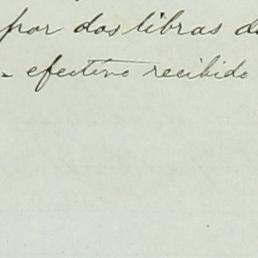 por dos libras de
efectivo recibido